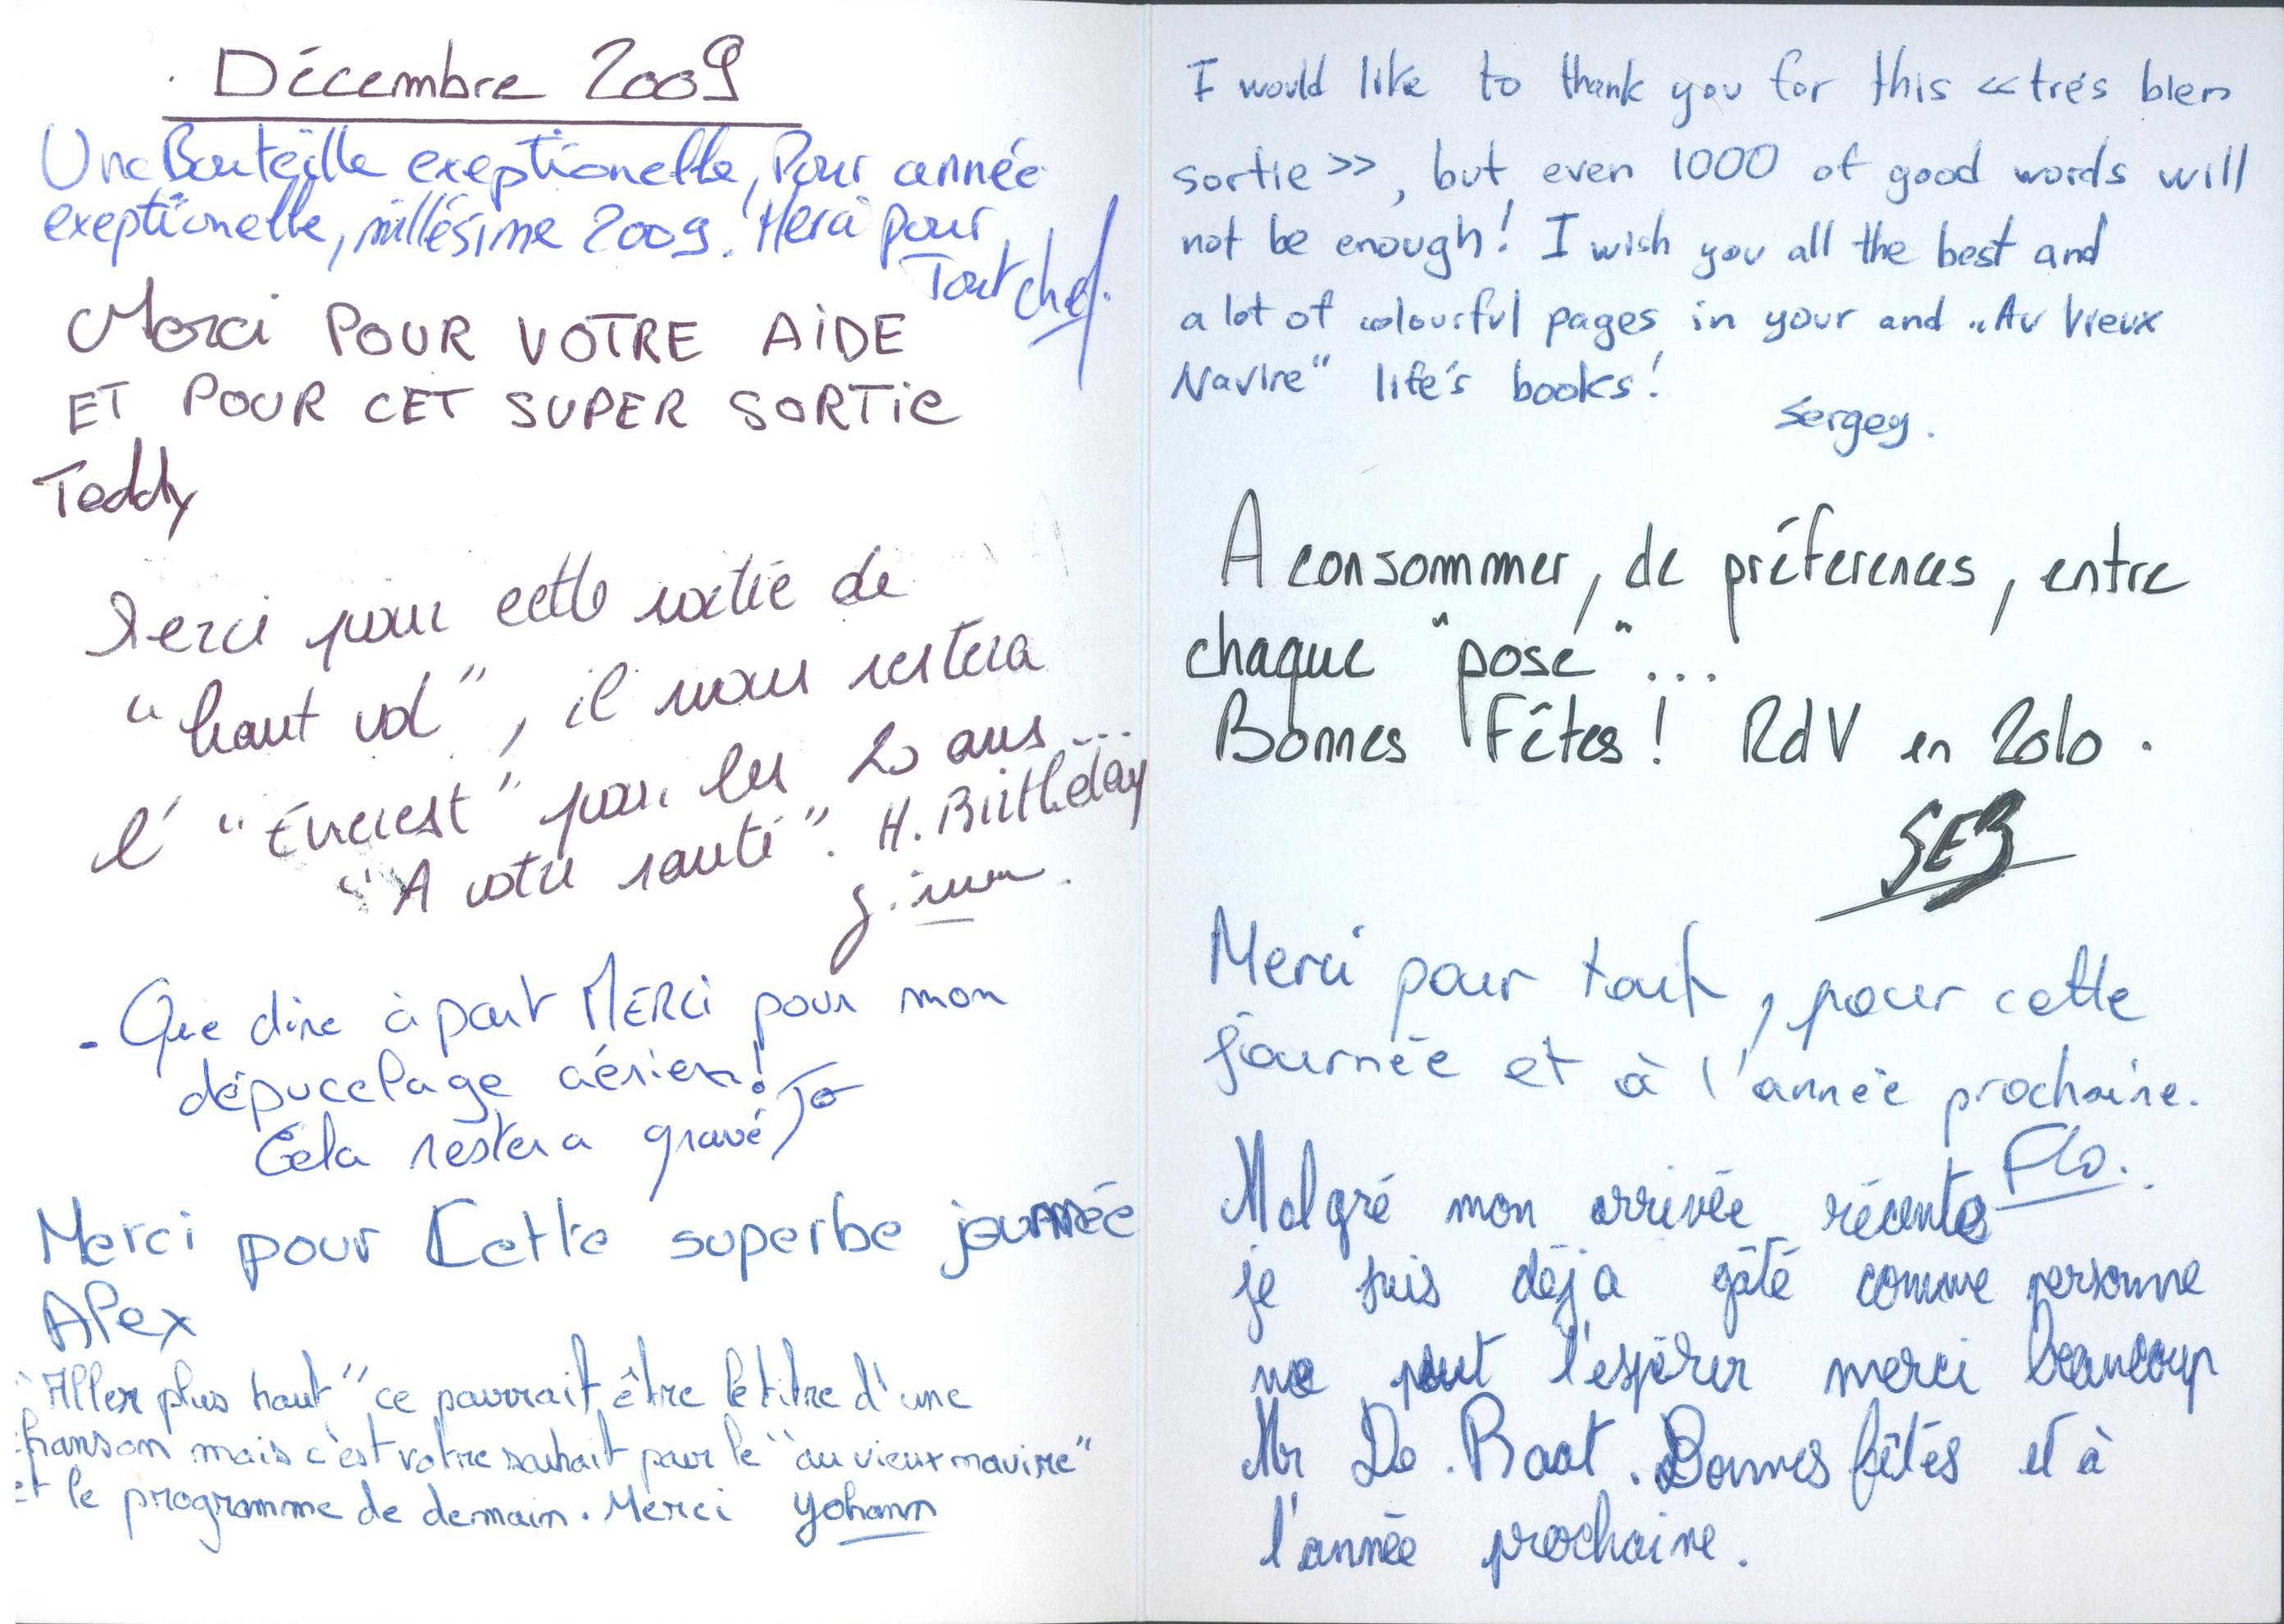 Décembre 2009
Une Bouteille exeptionelle, Pour année
exeptionelle, millésime 2009. Merci pour
Tout chef.
Merci POUR VOTRE AiDE
ET POUR CET SUPER SORTie
Teddy
Merci pour cette sortie de
"haut vol", il nous restera
l' "Everest" pour les 20 ans...
"A votre santé". H. Birthday
- Que dire à part MERCi pour mon
dépucelage aérien!
Cela restera gravé Jo
Merci pour Cette superbe journée
Alex
"Aller plus haut" ce pourrait être le titre d'une
chanson mais c'est votre souhait pour le "au vieux navire"
et le programme de demain. Merci Yohann
I would like to thank you for this «trés bien
sortie», but even 1000 of good words will
not be enough! I wish you all the best and
a lot of colourful pages in your and „Au Vieux
Navire" life's books!
Sergey.
A consommer, de préferences, entre
chaque "posé"...
Bonnes Fêtes! RdV en 2010.
SEB
Merci pour tout, pour cette
journée et à l'année prochaine.
Flo.
Malgré mon arrivée récente
je suis déja gâté comme personne
ne peut l'espérer merci beaucoup
Mr De.Baat. Bonnes fêtes et à
l'année prochaine.